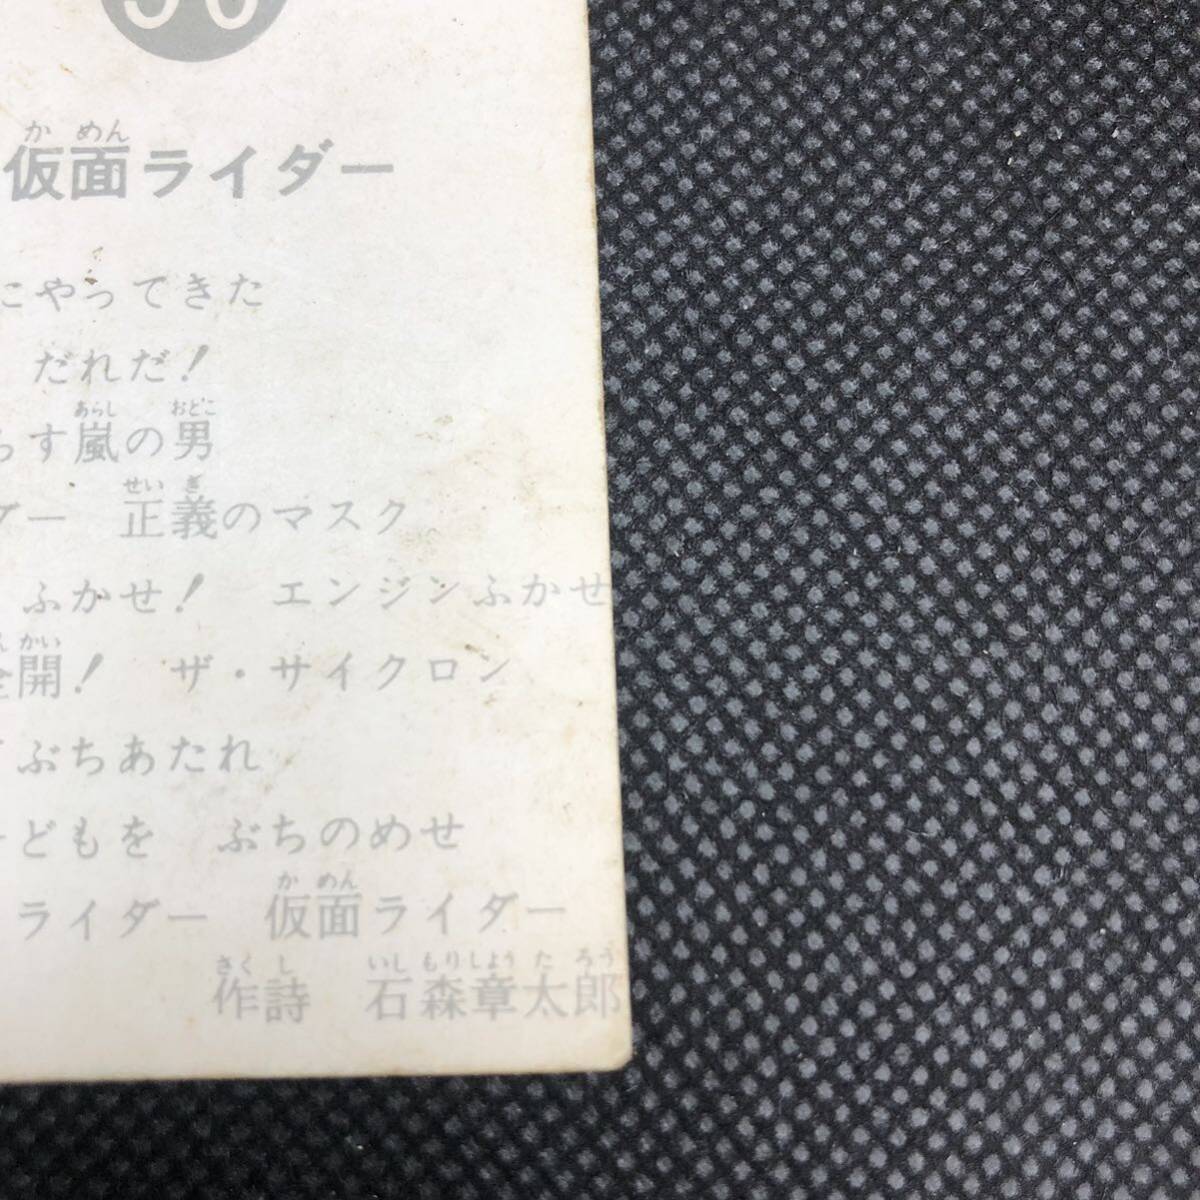 仮面ライダー
にやってきた
だれだ！
らす嵐の男
ダー 正義のマスク
ふかせ！ エンジンふかせ
全開！ ザ・サイクロン
ぶちあたれ
どもを ぶちのめせ
ライダー 仮面ライダー
作詩 石森章太郎